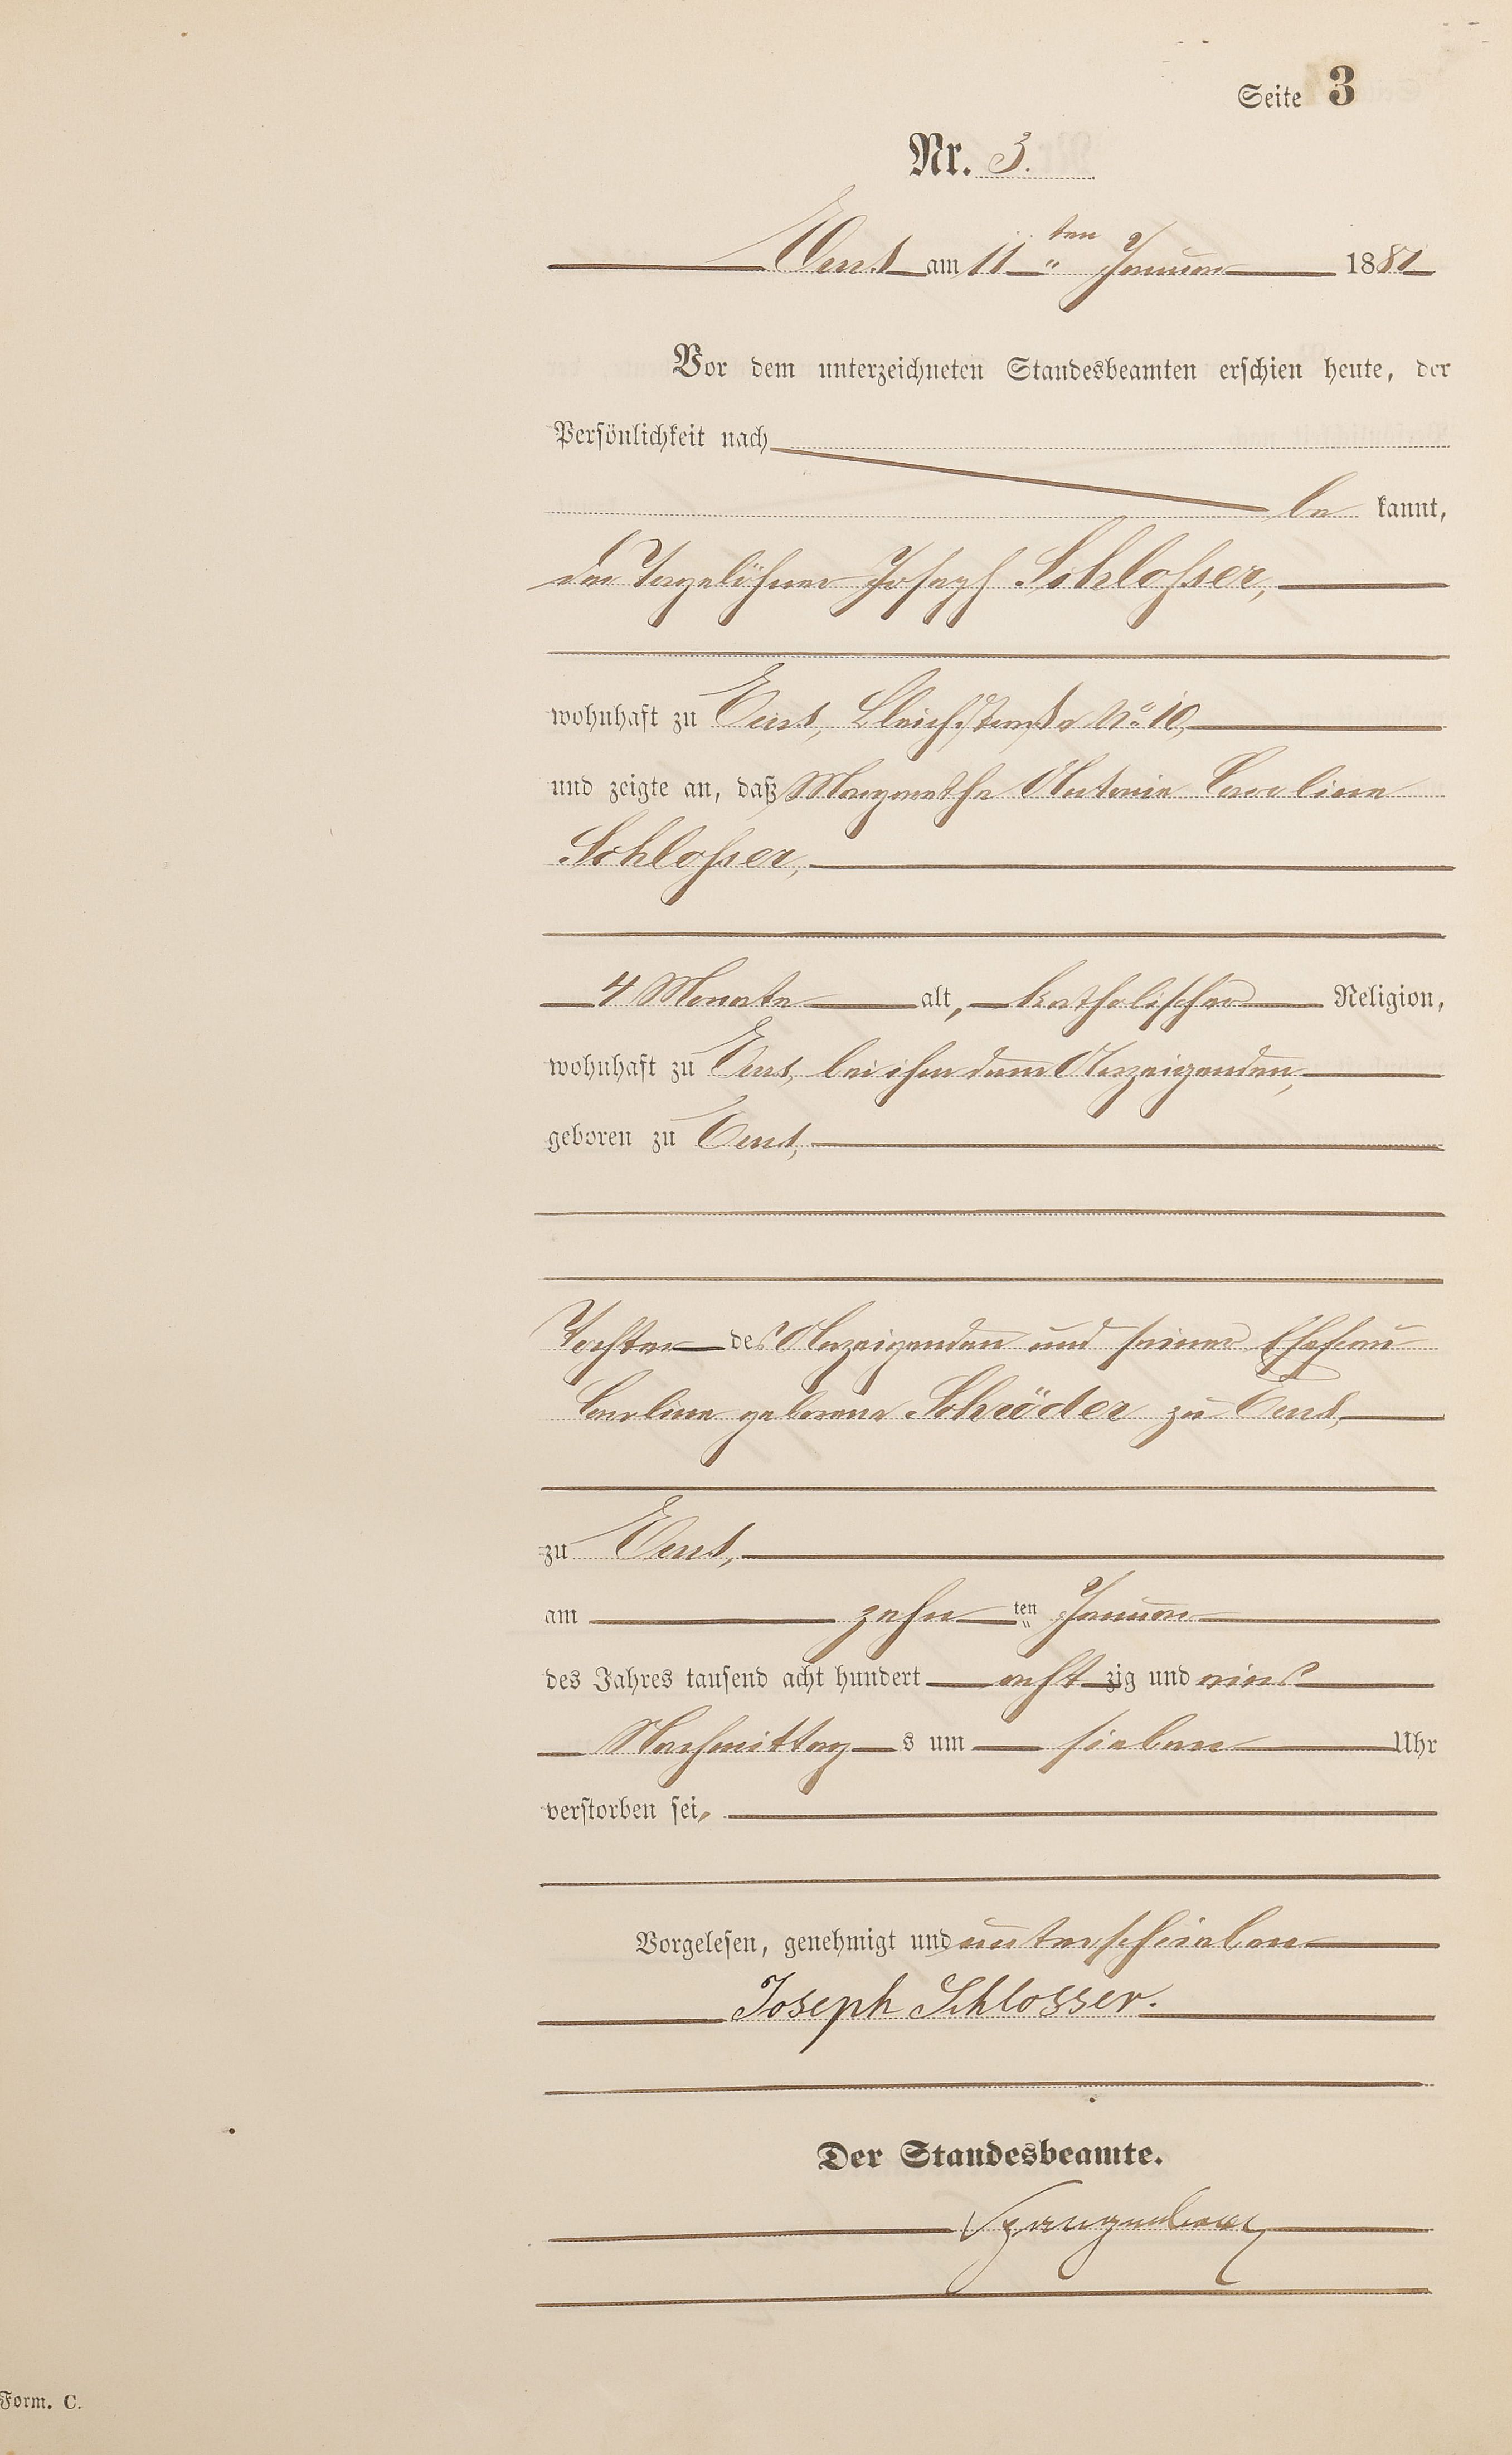 Seite 3
Nr. 3.
Ems am 11 ten Januar 1881
Vor dem unterzeichneten Standesbeamten erschien heute, der
Persönlichkeit nach
be kannt,
der Tagelöhner Joseph Schlosser,
wohnhaft zu Ems, Bleichstraße No 10,
und zeigte an, daß Margarethe Antonie Caroline
Schlosser,
4 Monate alt, katholischer Religion,
wohnhaft zu Ems, bei ihm dem Anzeigenden,
geboren zu Ems,
Tochter des Anzeigenden und seiner Ehefrau
Caroline geborene Schröder zu Ems,
zu Ems,
am zehn ten Januar
des Jahres tausend acht hundert acht zig und eins
Nachmittag s um sieben Uhr
verstorben sei.
Vorgelesen, genehmigt und unterschrieben
Joseph Schlosser.
Der Standesbeamte.
Form. C.